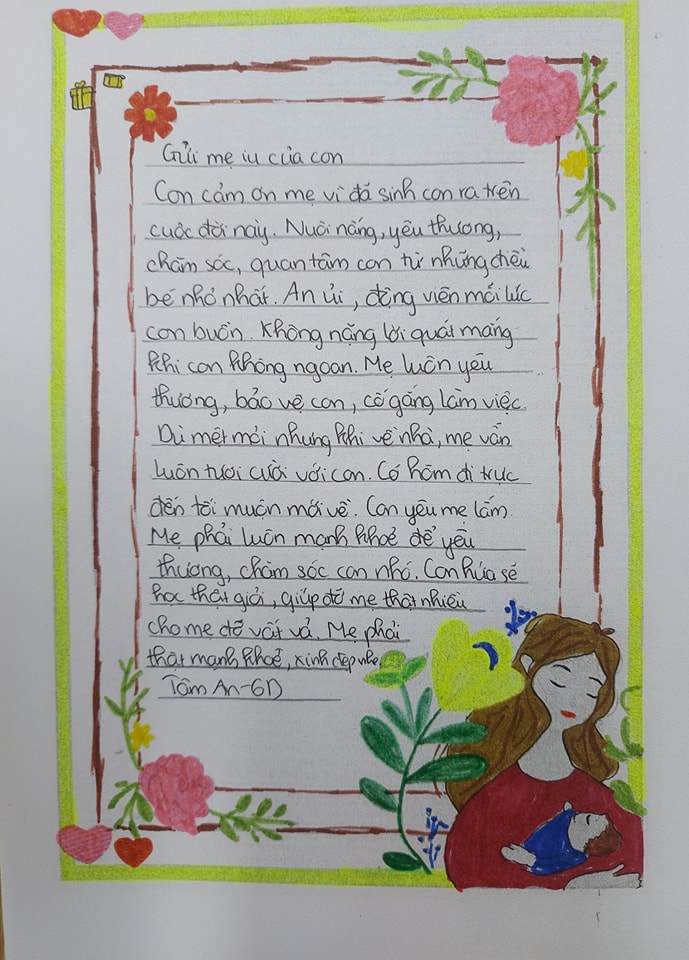 Gửi mẹ iu của con
Con cảm ơn mẹ vì đã sinh con ra trên
cuộc đời này. Nuôi nấng, yêu thương,
chăm sóc, quan tâm con từ những điều
bé nhỏ nhất. An ủi, động viên mỗi lúc
con buồn. Không nặng lời quát mắng
khi con không ngoan. Mẹ luôn yêu
thương, bảo vệ con, cố gắng làm việc.
Dù mệt mỏi nhưng khi về nhà, mẹ vẫn
luôn tươi cười với con. Có hôm đi trực
đến tối muộn mới về. Con yêu mẹ lắm.
Mẹ phải luôn mạnh khoẻ để yêu
thương, chăm sóc con nhó. Con hứa sẽ
học thật giỏi, giúp đỡ mẹ thật nhiều
cho mẹ đỡ vất vả. Mẹ phải
thật mạnh khoẻ, xinh đẹp nhe
Tâm An-6D